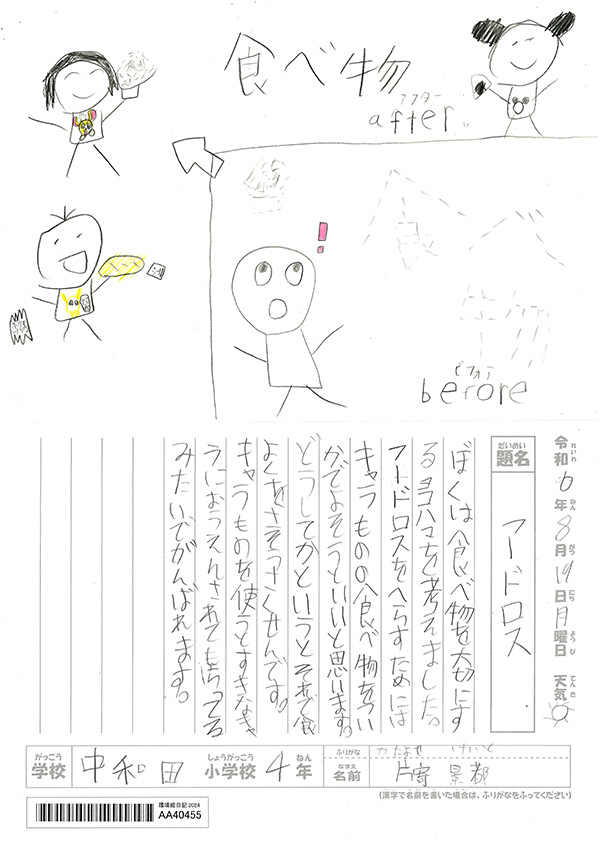 食べ物
アフター
after.
!
ビフォー
berore
令和6年8月19日月曜日 天気
れいわ ねん がつ にち ようび てんき
だいめい
題名
フードロス
ぼくは食べ物を大切にす
るヨコハマを考えました。
フードロスをへらすためには
キャラものの食べ物をつい
かでよそうといいと思います。
どうしてかというとそれで食
よくをさそうさくせんです。
キャラものを使うとすきなキャ
ラにおうえんされてもらってる
みたいでがんばれます。
がっこう しょうがっこう ねん
学校 中和田 小学校 4年
ふりがな かたよせ けいと
なまえ
名前 片寄 景都
(漢字で名前を書いた場合は、ふりがなをふってください)
環境絵日記2024
AA40455